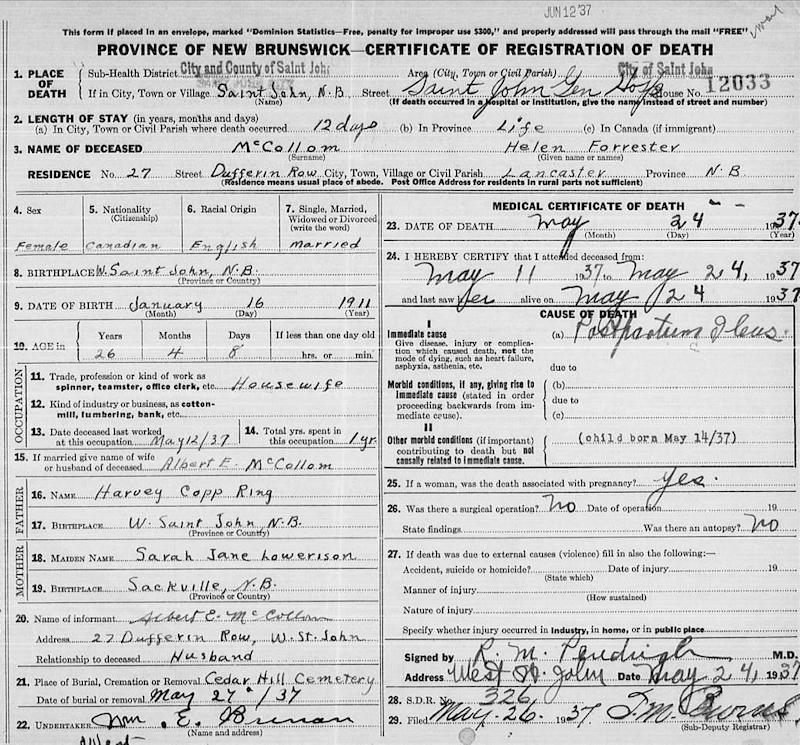 JUN 12 '37
This form if placed in an envelope, marked "Dominion Statistics—Free, penalty for improper use $300," and properly addressed will pass through the mail "FREE"
PROVINCE OF NEW BRUNSWICK—CERTIFICATE OF REGISTRATION OF DEATH
1. PLACE OF DEATH
Sub-Health District City and County of Saint John Area (City, Town or Civil Parish) City of Saint John
12033
If in City, Town or Village Saint John, N.B. Street Saint John Gen Hosp House No.
(Name) (If death occurred in a hospital or institution, give the name instead of street and number)
2. LENGTH OF STAY (in years, months and days)
(a) In City, Town or Civil Parish where death occurred 12 days (b) In Province Life (c) In Canada (if immigrant)
3. NAME OF DECEASED McCollom Helen Forrester
(Surname) (Given name or names)
RESIDENCE No. 27 Street Dufferin Row City, Town, Village or Civil Parish Lancaster Province N.B.
(Residence means usual place of abode. Post Office Address for residents in rural parts not sufficient)
4. Sex 5. Nationality (Citizenship) 6. Racial Origin 7. Single, Married, Widowed or Divorced (write the word)
Female Canadian English married
8. BIRTHPLACE W. Saint John, N.B.
(Province or Country)
9. DATE OF BIRTH January 16 1911
(Month) (Day) (Year)
10. AGE in Years Months Days If less than one day old
26 4 8 hrs. or min.
OCCUPATION
11. Trade, profession or kind of work as spinner, teamster, office clerk, etc. Housewife
12. Kind of industry or business, as cotton-mill, lumbering, bank, etc.
13. Date deceased last worked at this occupation May 12/37 14. Total yrs. spent in this occupation 1 yr.
15. If married give name of wife or husband of deceased Albert E. McCollom
FATHER
16. NAME Harvey Copp Ring
17. BIRTHPLACE W. Saint John, N.B.
(Province or Country)
MOTHER
18. MAIDEN NAME Sarah Jane Lowerison
19. BIRTHPLACE Sackville, N.B.
(Province or Country)
20. Name of informant Albert E. McCollom
Address 27 Dufferin Row, W. St. John
Relationship to deceased Husband
21. Place of Burial, Cremation or Removal Cedar Hill Cemetery
Date of burial or removal May 27 /37
22. UNDERTAKER Wm. E. Brenan
(Name and address)
West
MEDICAL CERTIFICATE OF DEATH
23. DATE OF DEATH May 24 1937
(Month) (Day) (Year)
24. I HEREBY CERTIFY that I attended deceased from:
May 11 1937 to May 24, 1937
and last saw her alive on May 24 1937
CAUSE OF DEATH
I
Immediate cause (a) Postpartum Ileus.
Give disease, injury or complication which caused death, not the mode of dying, such as heart failure, asphyxia, asthenia, etc.
due to
Morbid conditions, if any, giving rise to immediate cause (stated in order proceeding backwards from immediate cause).
(b)
due to
(c)
II
Other morbid conditions (if important) contributing to death but not causally related to immediate cause.
(child born May 14/37)
25. If a woman, was the death associated with pregnancy? yes.
26. Was there a surgical operation? No Date of operation 19
State findings Was there an autopsy? No
27. If death was due to external causes (violence) fill in also the following:—
Accident, suicide or homicide? Date of injury 19
(State which)
Manner of injury
(How sustained)
Nature of injury
Specify whether injury occurred in industry, in home, or in public place
Signed by R. M. Pendrigh M.D.
Address West St John Date May 24, 1937
28. S.D.R. No. 326
29. Filed May 26 1937
(Sub-Deputy Registrar)